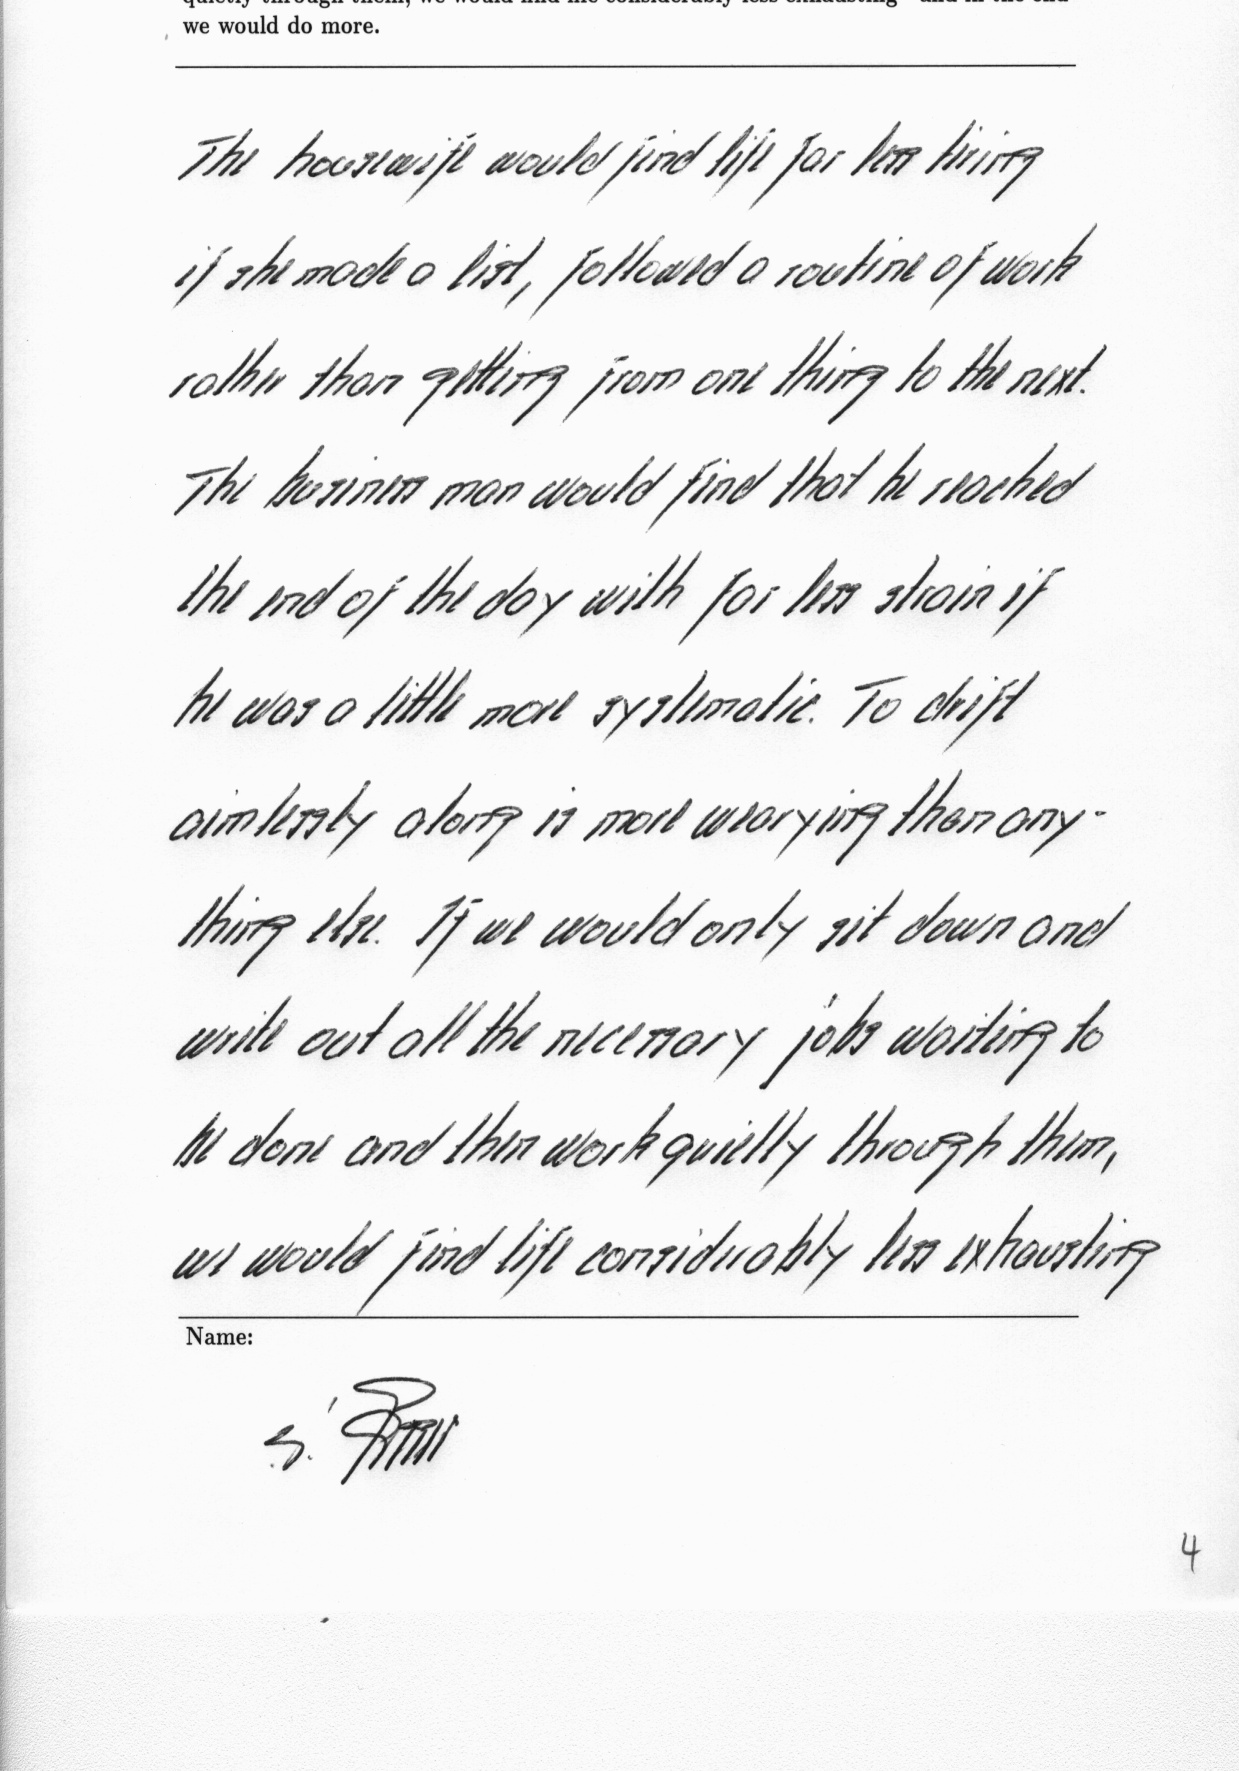 we would do more.
The housewife would find life far less tiring
if she made a list, followed a routine of work
rather than getting from one thing to the next.
The business man would find that he reached
the end of the day with far less strain if
he was a little more systematic. To drift
aimlessly along is more wearying than any-
thing else. If we would only sit down and
write out all the necessary jobs waiting to
be done and then work quietly through them,
we would find life considerably less exhausting
Name:
S.
4